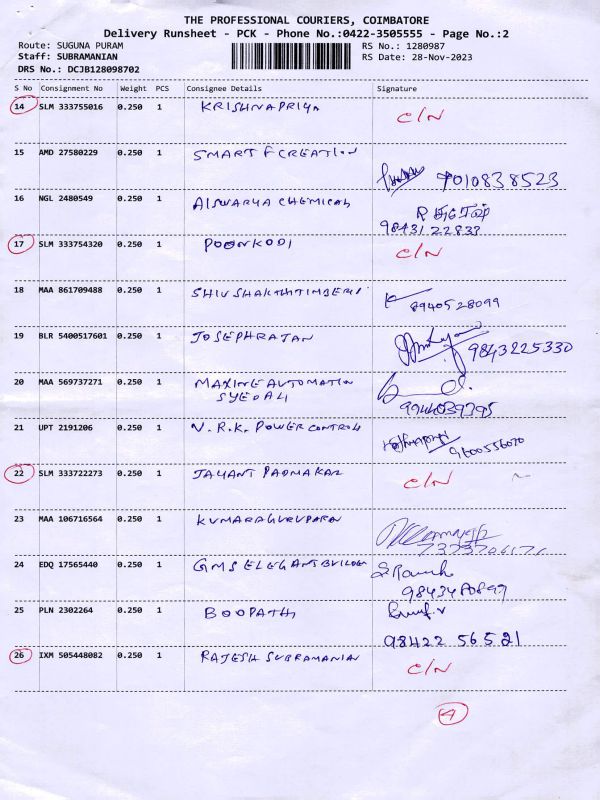 THE PROFESSIONAL COURIERS, COIMBATORE
Delivery Runsheet - PCK - Phone No.:0422-3505555 - Page No.:2
Route: SUGUNA PURAM RS No.: 1280987
Staff: SUBRAMANIAN RS Date: 28-Nov-2023
DRS No.: DCJB128098702
S No Consignment No Weight PCS Consignee Details Signature
14 SLM 333755016 0.250 1 KRISHNAPRIYA C/N
15 AMD 27580229 0.250 1 SMART F CREATION 7010838523
16 NGL 2480549 0.250 1 AISWARYA CHEMICAL
98431 22833
17 SLM 333754320 0.250 1 POONKODI C/N
18 MAA 861709488 0.250 1 SHIV SHAKTHI TIMBERS 8940528099
19 BLR 5400517601 0.250 1 JOSEPH RAJAN 9843225330
20 MAA 569737271 0.250 1 MAXINE AUTOMATION
SYED ALI 9944039795
21 UPT 2191206 0.250 1 V.R.K. POWER CONTROLS 9600556020
22 SLM 333722273 0.250 1 JAYANT PADMAKAR C/N
23 MAA 106716564 0.250 1 KUMARAGURUPARAN
24 EDQ 17565440 0.250 1 GMS ELEGANT BUILDER S Ramesh
9843480899
25 PLN 2302264 0.250 1 BOOPATHI
98422 56521
26 IXM 505448082 0.250 1 RAJESH SUBRAMANIAN C/N
4